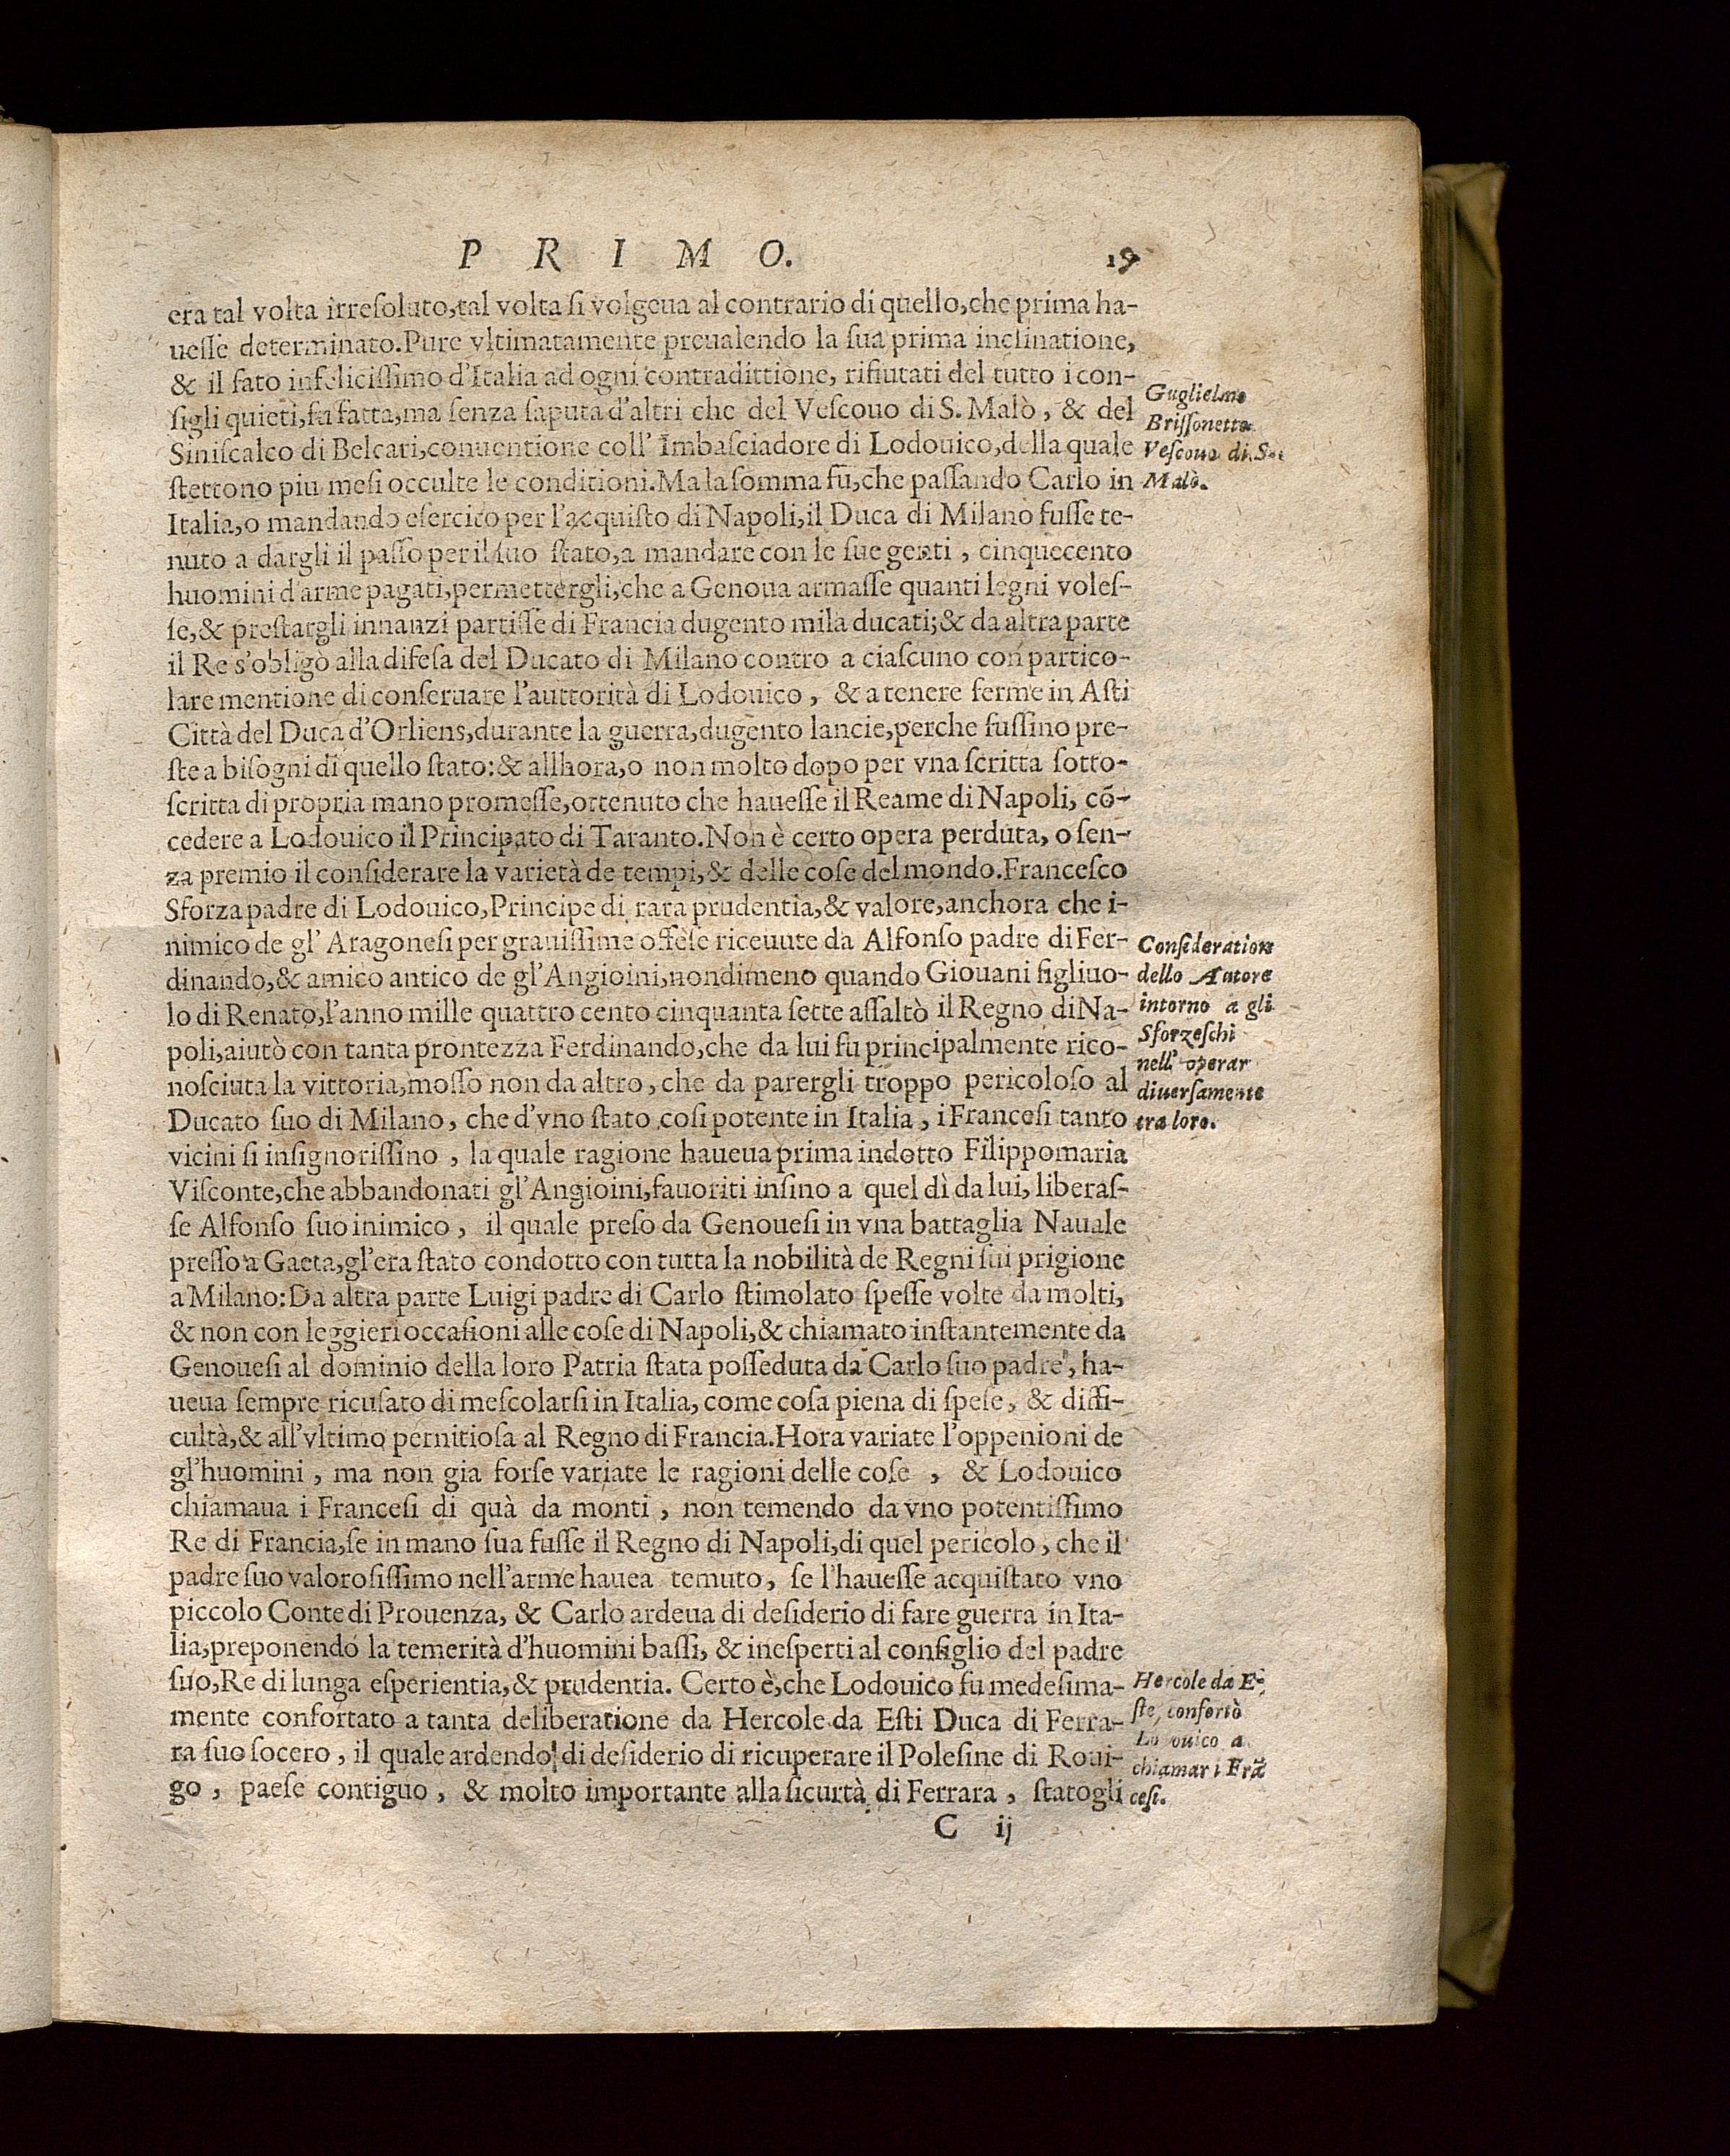 P R I M O. 19
era tal volta irreſoluto, tal volta ſi volgeua al contrario di quello, che prima ha-
ueſſe determinato. Pure vltimatamente preualendo la ſua prima inclinatione,
& il fato infeliciſſimo d'Italia ad ogni contradittione, rifiutati del tutto i con-
ſigli quieti, fu fatta, ma ſenza ſaputa d'altri che del Veſcouo di S. Malò, & del
Siniſcalco di Belcari, conuentione coll' Imbaſciadore di Lodouico, della quale
ſtettono piu meſi occulte le conditioni. Ma la ſomma fù, che paſſando Carlo in
Italia, o mandando eſercito per l'acquiſto di Napoli, il Duca di Milano fuſſe te-
nuto a dargli il paſſo per il ſuo ſtato, a mandare con le ſue genti, cinquecento
huomini d'arme pagati, permettergli, che a Genoua armaſſe quanti legni voleſ-
ſe, & preſtargli innanzi partiſſe di Francia dugento mila ducati; & da altra parte
il Re s'obligò alla difeſa del Ducato di Milano contro a ciaſcuno con partico-
lare mentione di conſeruare l'auttorità di Lodouico, & a tenere ferme in Aſti
Città del Duca d'Orliens, durante la guerra, dugento lancie, perche fuſſino pre-
ſte a biſogni di quello ſtato: & allhora, o non molto dopo per vna ſcritta ſotto-
ſcritta di propria mano promeſſe, ottenuto che haueſſe il Reame di Napoli, cō-
cedere a Lodouico il Principato di Taranto. Non è certo opera perduta, o ſen-
za premio il conſiderare la varietà de tempi, & delle coſe del mondo. Franceſco
Sforza padre di Lodouico, Principe di rara prudentia, & valore, anchora che i-
nimico de gl' Aragoneſi per grauiſſime offeſe riceuute da Alfonſo padre di Fer-
dinando, & amico antico de gl'Angioini, nondimeno quando Giouani figliuo-
lo di Renato, l'anno mille quattro cento cinquanta ſette aſſaltò il Regno di Na-
poli, aiutò con tanta prontezza Ferdinando, che da lui fu principalmente rico-
noſciuta la vittoria, moſſo non da altro, che da parergli troppo pericoloſo al
Ducato ſuo di Milano, che d'vno ſtato coſi potente in Italia, i Franceſi tanto
vicini ſi inſignoriſſino, la quale ragione haueua prima indotto Filippomaria
Viſconte, che abbandonati gl'Angioini, fauoriti inſino a quel dì da lui, liberaſ-
ſe Alfonſo ſuo inimico, il quale preſo da Genoueſi in vna battaglia Nauale
preſſo a Gaeta, gl'era ſtato condotto con tutta la nobilità de Regni ſui prigione
a Milano: Da altra parte Luigi padre di Carlo ſtimolato ſpeſſe volte da molti,
& non con leggieri occaſioni alle coſe di Napoli, & chiamato inſtantemente da
Genoueſi al dominio della loro Patria ſtata poſſeduta da Carlo ſuo padre, ha-
ueua ſempre ricuſato di meſcolarſi in Italia, come coſa piena di ſpeſe, & diffi-
cultà, & all'vltimo pernitioſa al Regno di Francia. Hora variate l'oppenioni de
gl'huomini, ma non gia forſe variate le ragioni delle coſe, & Lodouico
chiamaua i Franceſi di quà da monti, non temendo da vno potentiſſimo
Re di Francia, ſe in mano ſua fuſſe il Regno di Napoli, di quel pericolo, che il
padre ſuo valoroſiſſimo nell'arme hauea temuto, ſe l'haueſſe acquiſtato vno
piccolo Conte di Prouenza, & Carlo ardeua di deſiderio di fare guerra in Ita-
lia, preponendo la temerità d'huomini baſſi, & ineſperti al conſiglio del padre
ſuo, Re di lunga eſperientia, & prudentia. Certo è, che Lodouico fu medeſima-
mente confortato a tanta deliberatione da Hercole da Eſti Duca di Ferra-
ra ſuo ſocero, il quale ardendo di deſiderio di ricuperare il Poleſine di Roui-
go, paeſe contiguo, & molto importante alla ſicurtà di Ferrara, ſtatogli
C ij
Guglielmo
Briſſonetto
Veſcouo di S.
Malò.
Conſideratione
dello Autore
intorno a gli
Sforzeſchi
nell' operar
diuerſamente
tra loro.
Hercole da E-
ſte, confortò
Lodouico a
chiamar i Frā
ceſi.